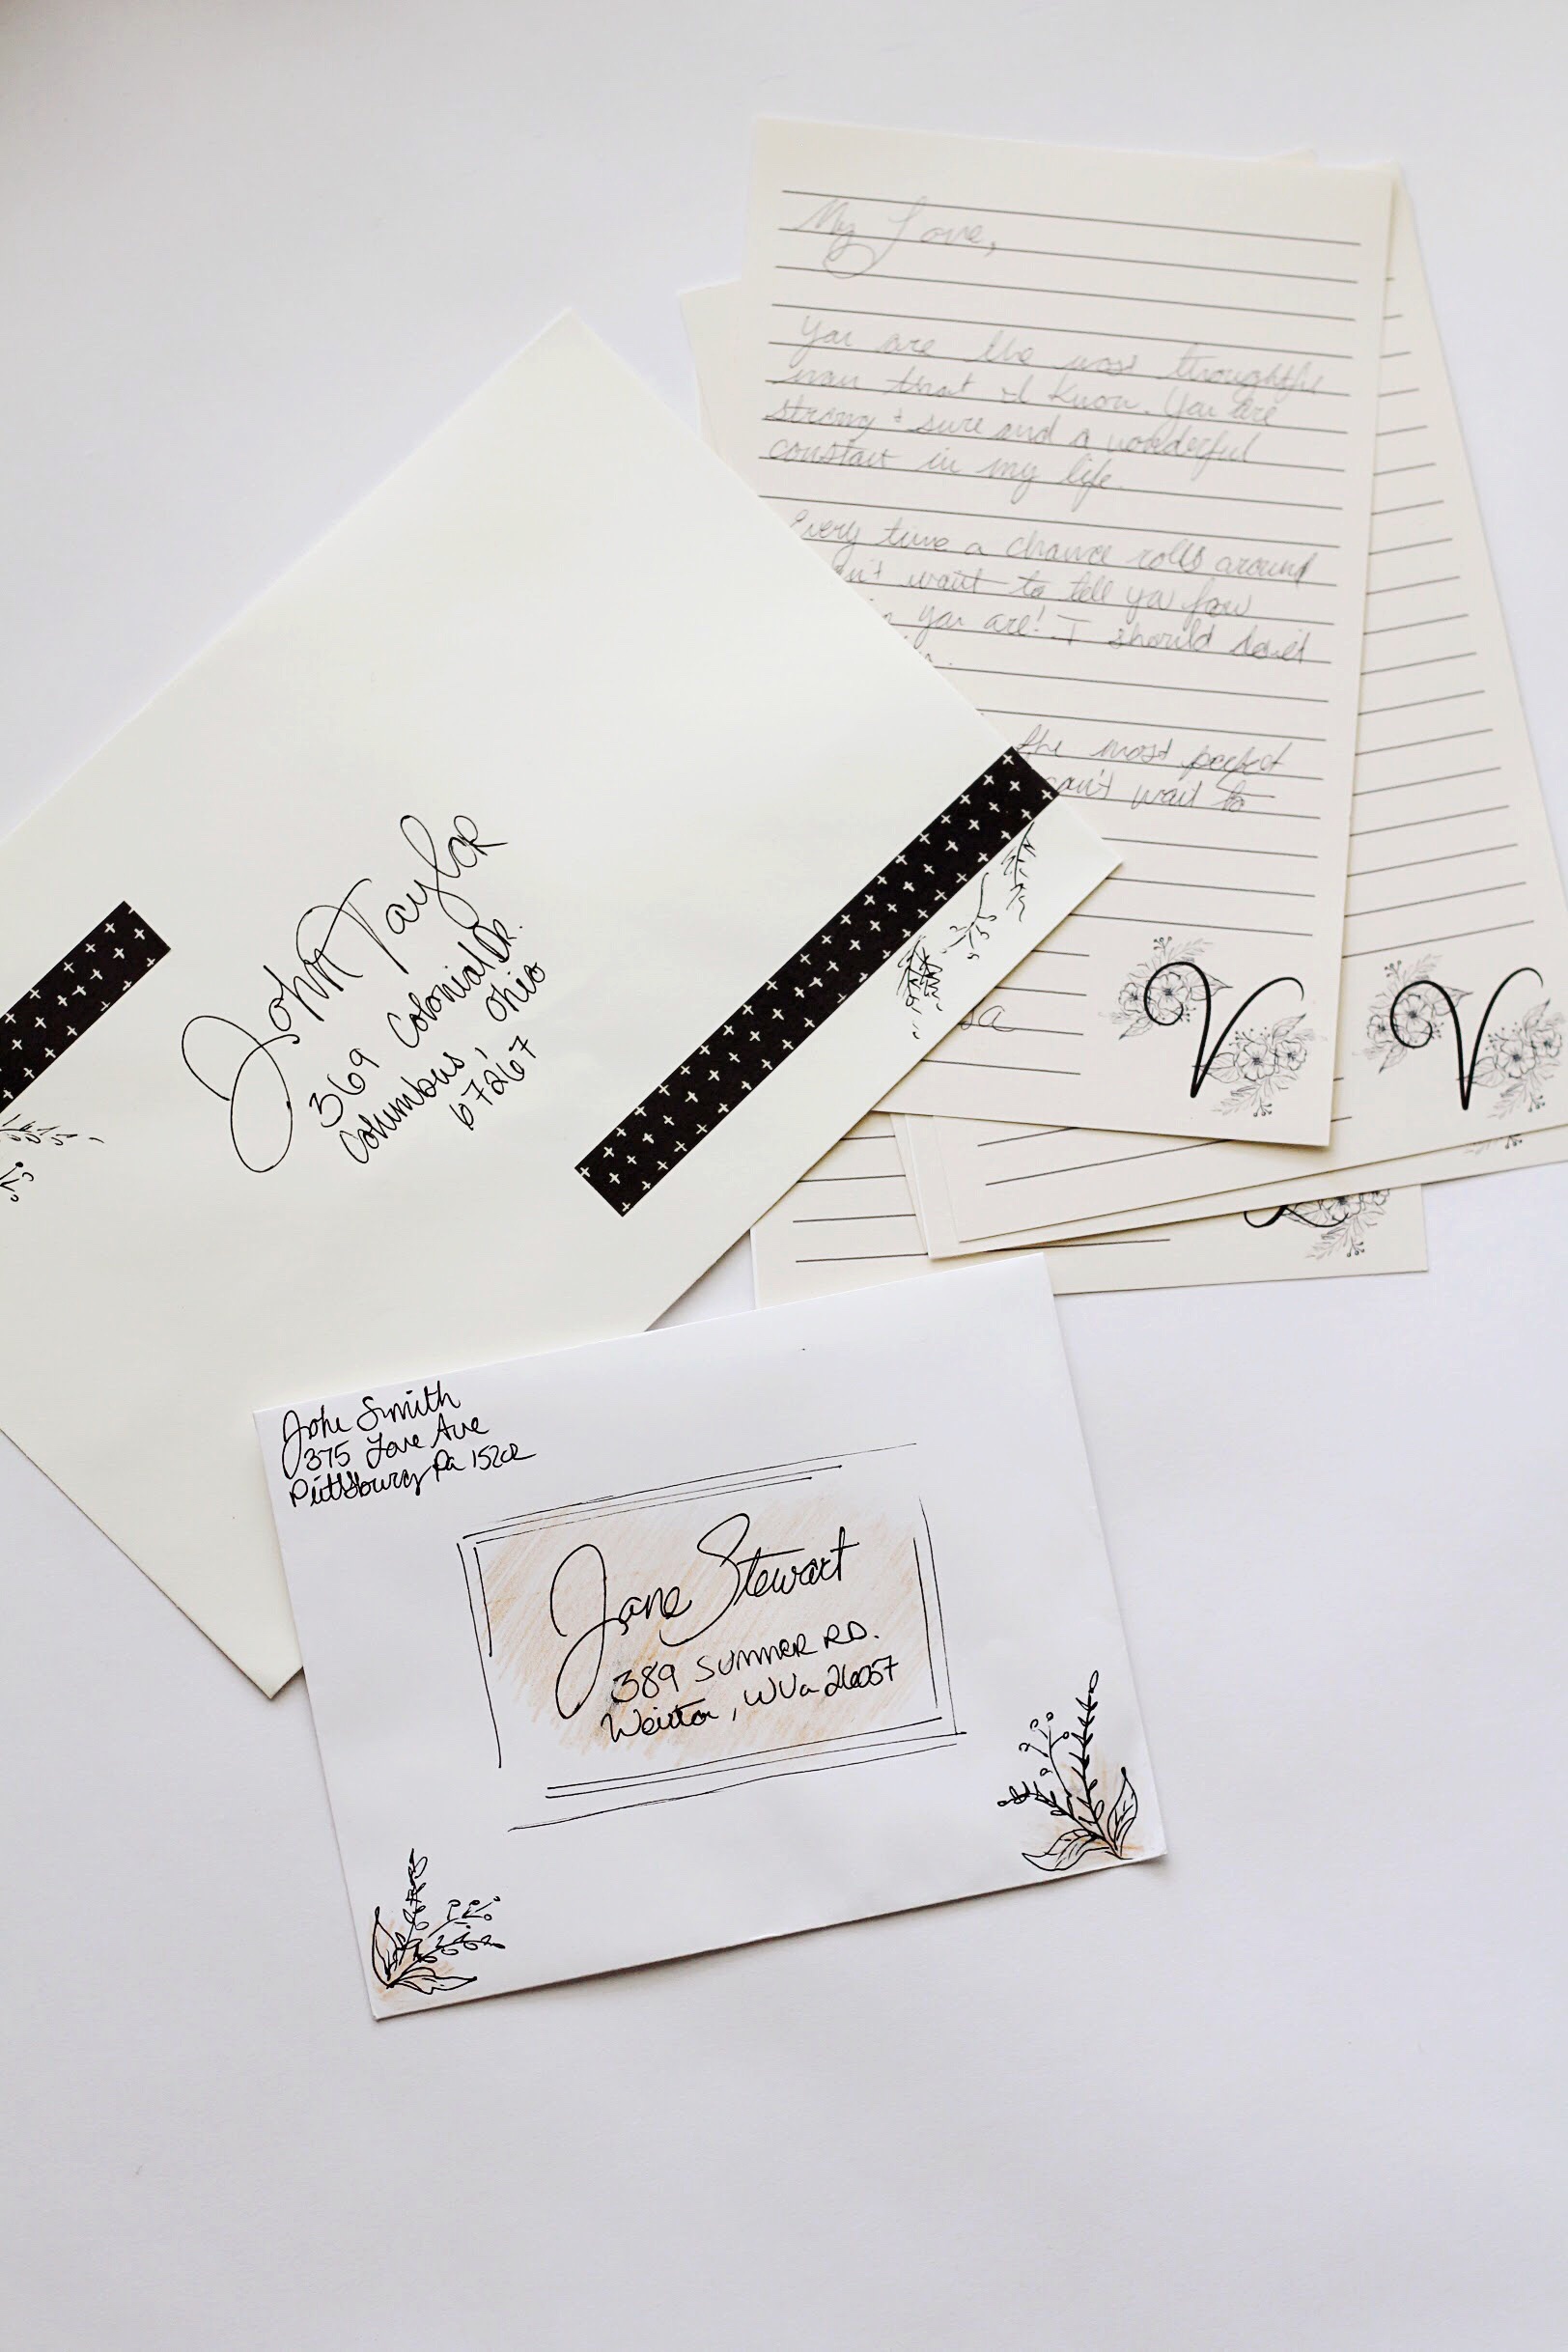 My Love,
You are the most thoughtful
man that I know. You are
strong + sure and a wonderful
constant in my life.
Every time a chance rolls around
want to tell you how
you are! I should do it
the most perfect
can't wait to
sa
V
V
John Taylor
369 Colonial Dr.
Columbus, Ohio
67267
John Smith
375 Love Ave
Pittsburg Pa
Jane Stewart
389 SUMMER RD.
Weirton, WVa 26057